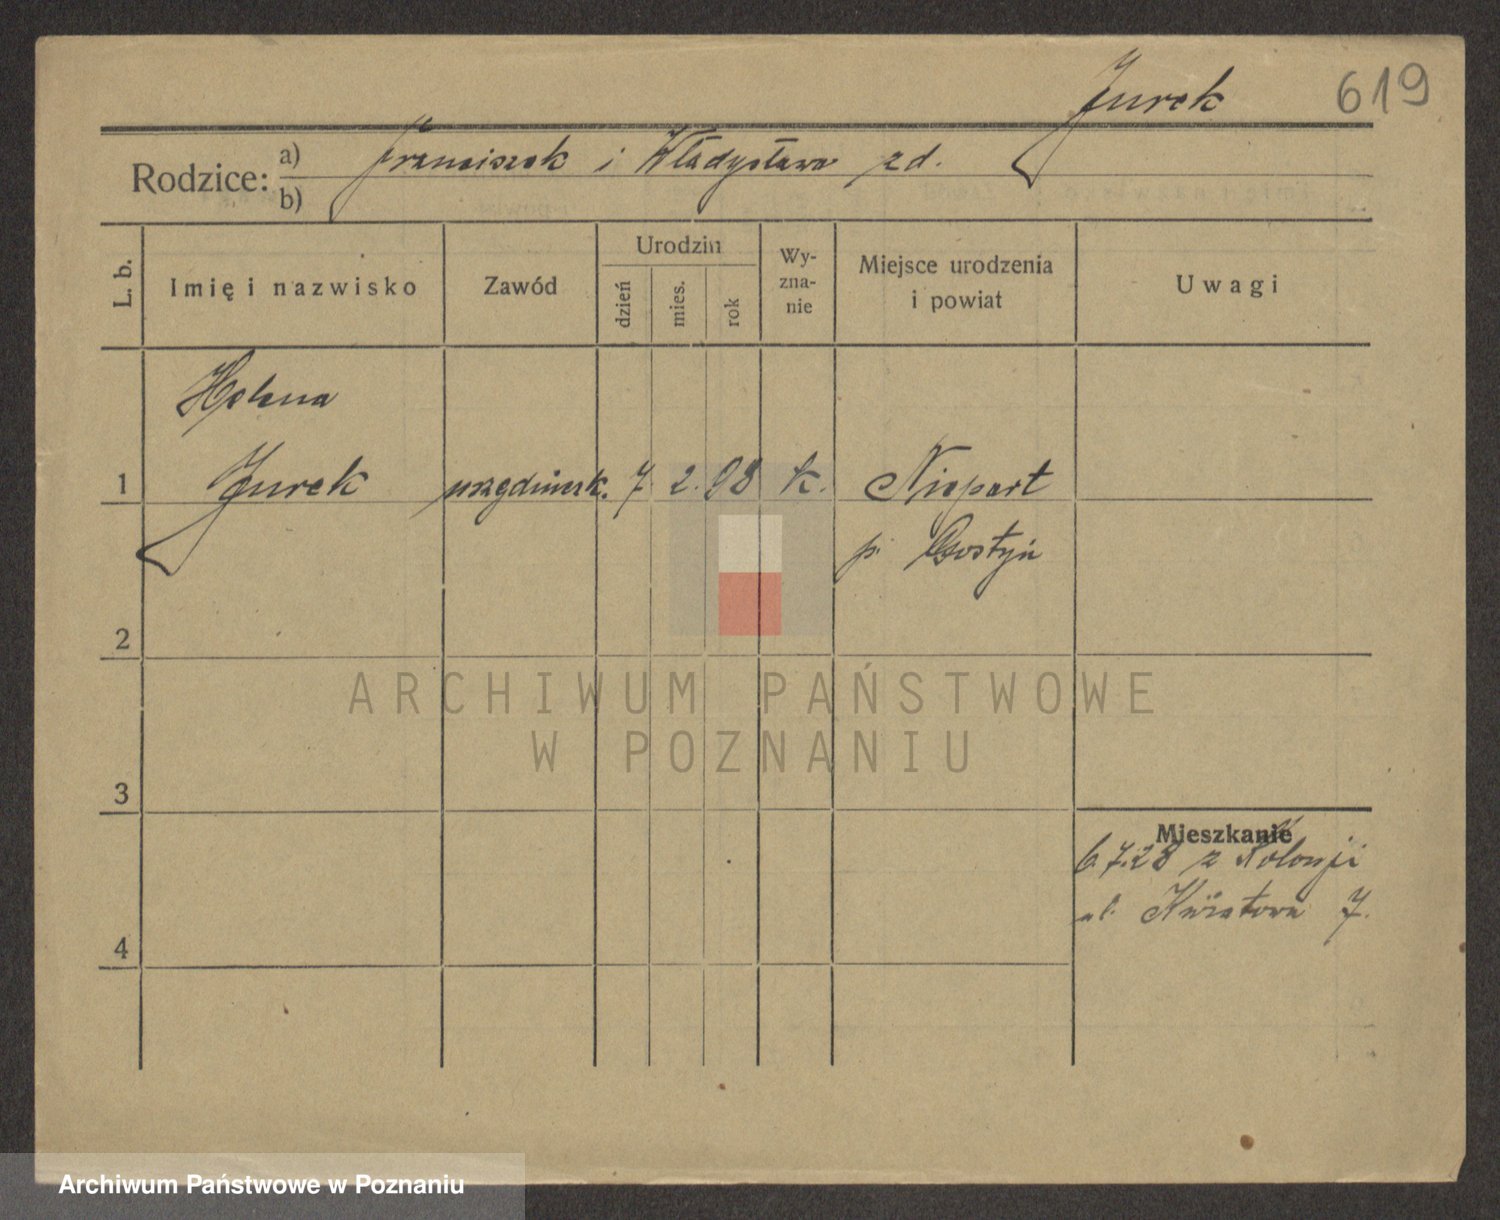 Jurek 619
Rodzice: a) Franciszek i Władysława zd.
b)
L. b. Imię i nazwisko Zawód Urodzin dzień mies. rok Wy-zna-nie Miejsce urodzenia i powiat Uwagi
Helena
1 Jurek urzędniczk. 7 2. 98 k. Niepart
p. Gostyń
2
ARCHIWUM PAŃSTWOWE
W POZNANIU
3
Mieszkanie
6.7.28 z Kolonji
4 ul. Kwiatowa 7.
Archiwum Państwowe w Poznaniu